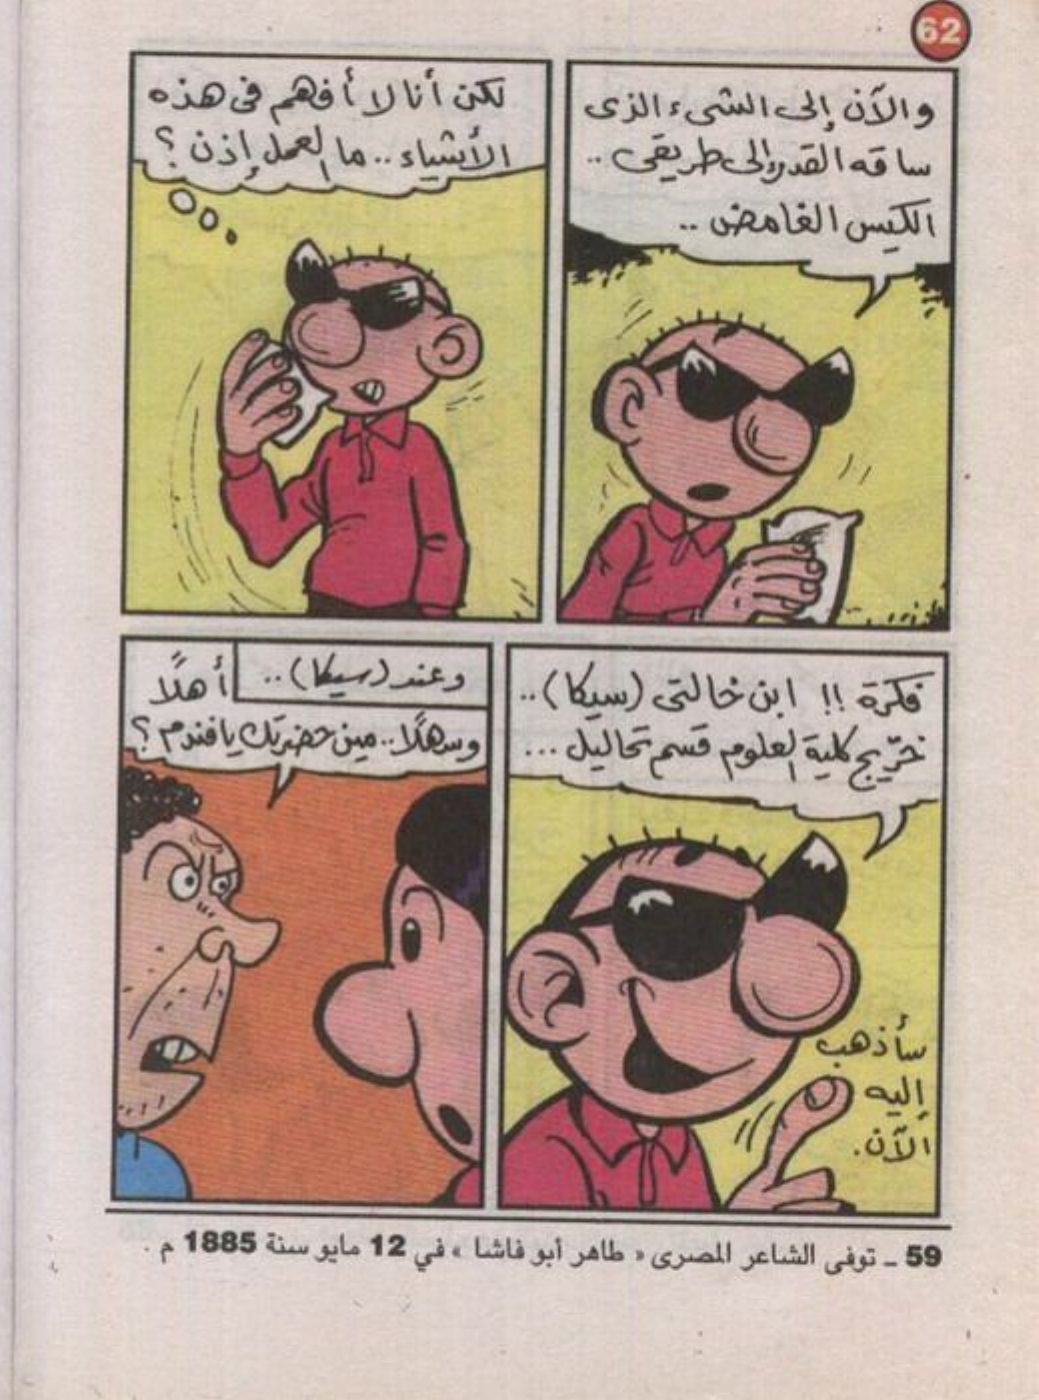 62
والآن إلى الشىء الذى
ساقه القدر إلى طريقى ..
الكيس الغامض ..
لكن أنا لا أفهم فى هذه
الأشياء .. ما العمل إذن ؟
فكرة !! ابن خالتى (سيكا) ..
خرّيج كلية العلوم قسم تحاليل ...
سأذهب
إليه
الآن.
وعند (سيكا) ..
أهلًا
وسهلًا .. مين حضرتك يا فندم ؟
59 ـ توفى الشاعر المصرى « طاهر أبو فاشا » في 12 مايو سنة 1885 م .